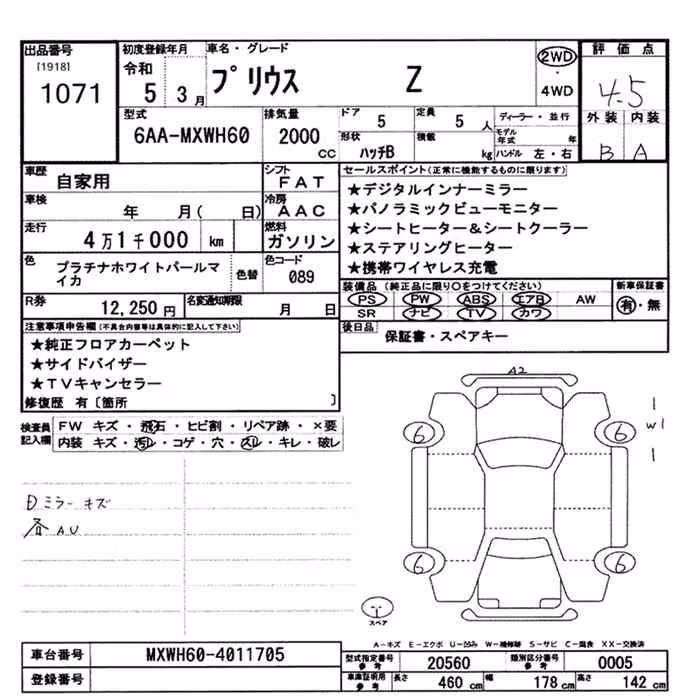 出品番号
[1918]
1071
初度登録年月
令和
5 3月
車名・グレード
プリウス Z
2WD
・
4WD
評価点
4.5
外装 内装
B A
型式
6AA-MXWH60
排気量
2000
cc
ドア
5
定員
5 人
ディーラー・並行
形状
ハッチB
積載
kg
モデル年式 年
ハンドル 左・右
車歴
自家用
シフト
FAT
車検
年 月( 日)
冷房
AAC
走行
4万1千000 km
燃料
ガソリン
色
プラチナホワイトパールマイカ
色替
色コード
089
R券
12,250円
名変通知期限
月 日
セールスポイント(正常に機能するものに限ります)
★デジタルインナーミラー
★パノラミックビューモニター
★シートヒーター&シートクーラー
★ステアリングヒーター
★携帯ワイヤレス充電
装備品(純正品に限り○をつけてください)
PS PW ABS エアB AW
SR ナビ TV カワ
新車保証書
有・無
後日品
保証書・スペアキー
注意事項申告欄(不具合内容等は具体的に記入して下さい)
★純正フロアカーペット
★サイドバイザー
★TVキャンセラー
修復歴 有〔箇所 〕
検査員記入欄
FW キズ・飛石・ヒビ割・リペア跡・×要
内装 キズ・汚れ・コゲ・穴・スレ・キレ・破レ
ミラー キズ
各 AU
A2
6 6
6 6
W1
スペア
A-キズ E-エクボ U-凹み W-補修跡 S-サビ C-腐食 XX-交換済
車台番号
MXWH60-4011705
登録番号
型式指定番号 参考
20560
類別区分番号 参考
0005
車庫証明用 参考
長さ 460 cm
幅 178 cm
高さ 142 cm